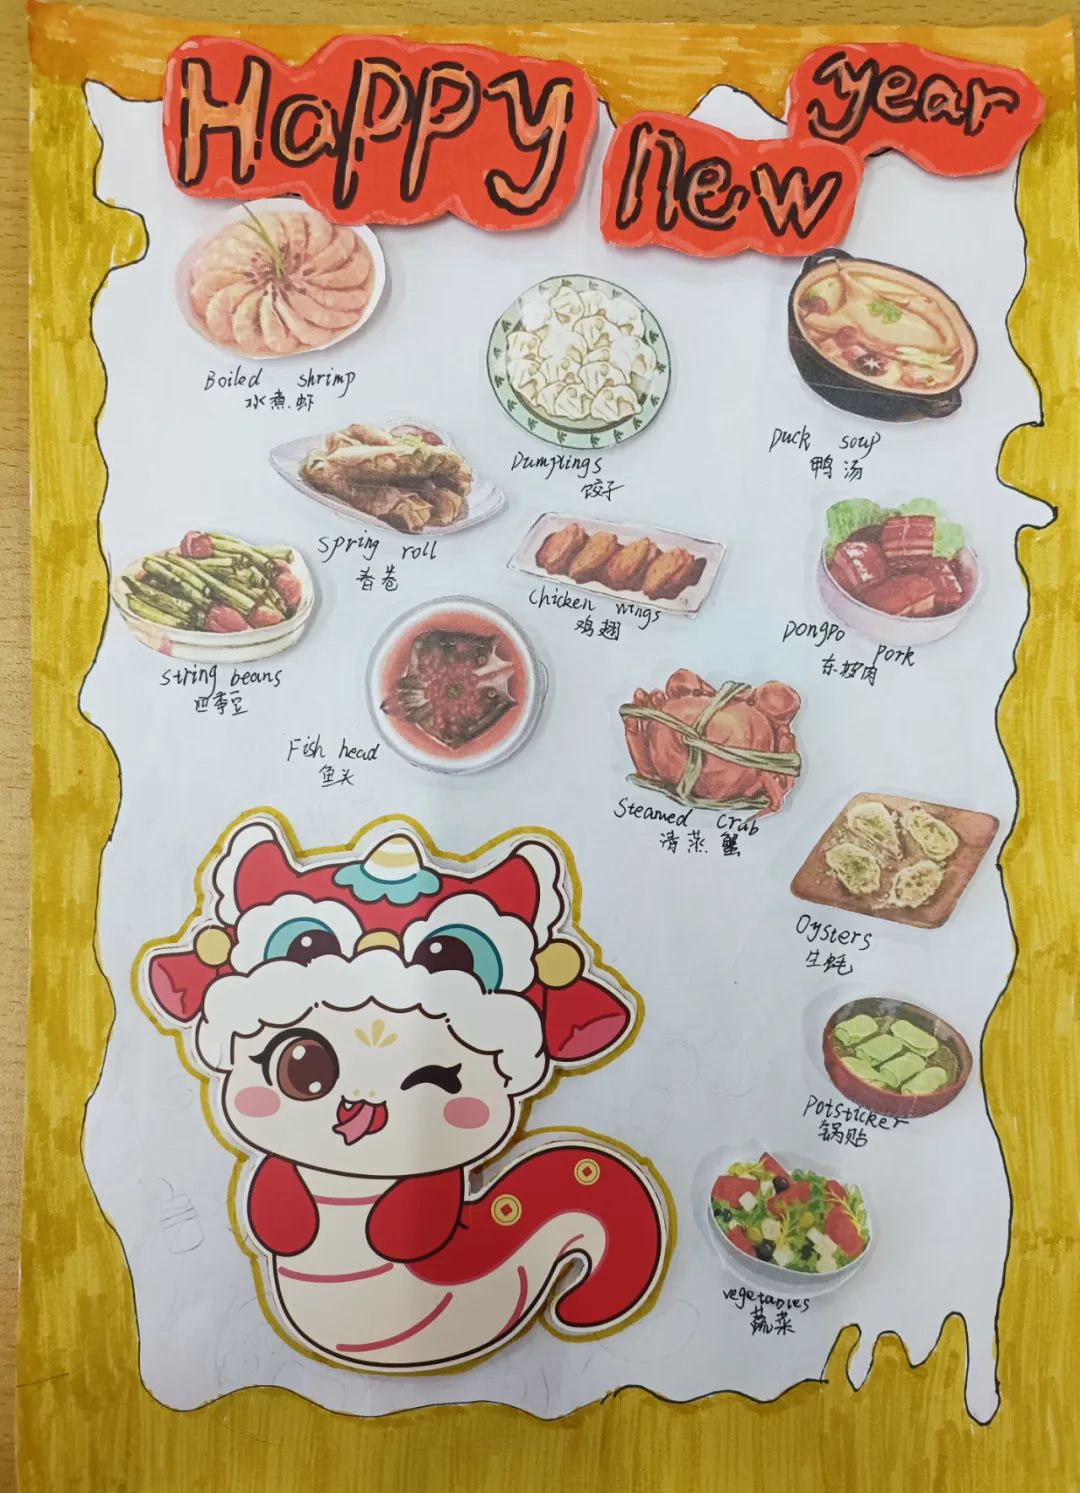 Happy
New
year
Boiled shrimp
水煮虾
Dumplings
饺子
Duck soup
鸭汤
Spring roll
春卷
Chicken wings
鸡翅
Dongpo Pork
东坡肉
String beans
四季豆
Fish head
鱼头
Steamed Crab
清蒸蟹
Oysters
生蚝
Potsticker
锅贴
vegetables
蔬菜